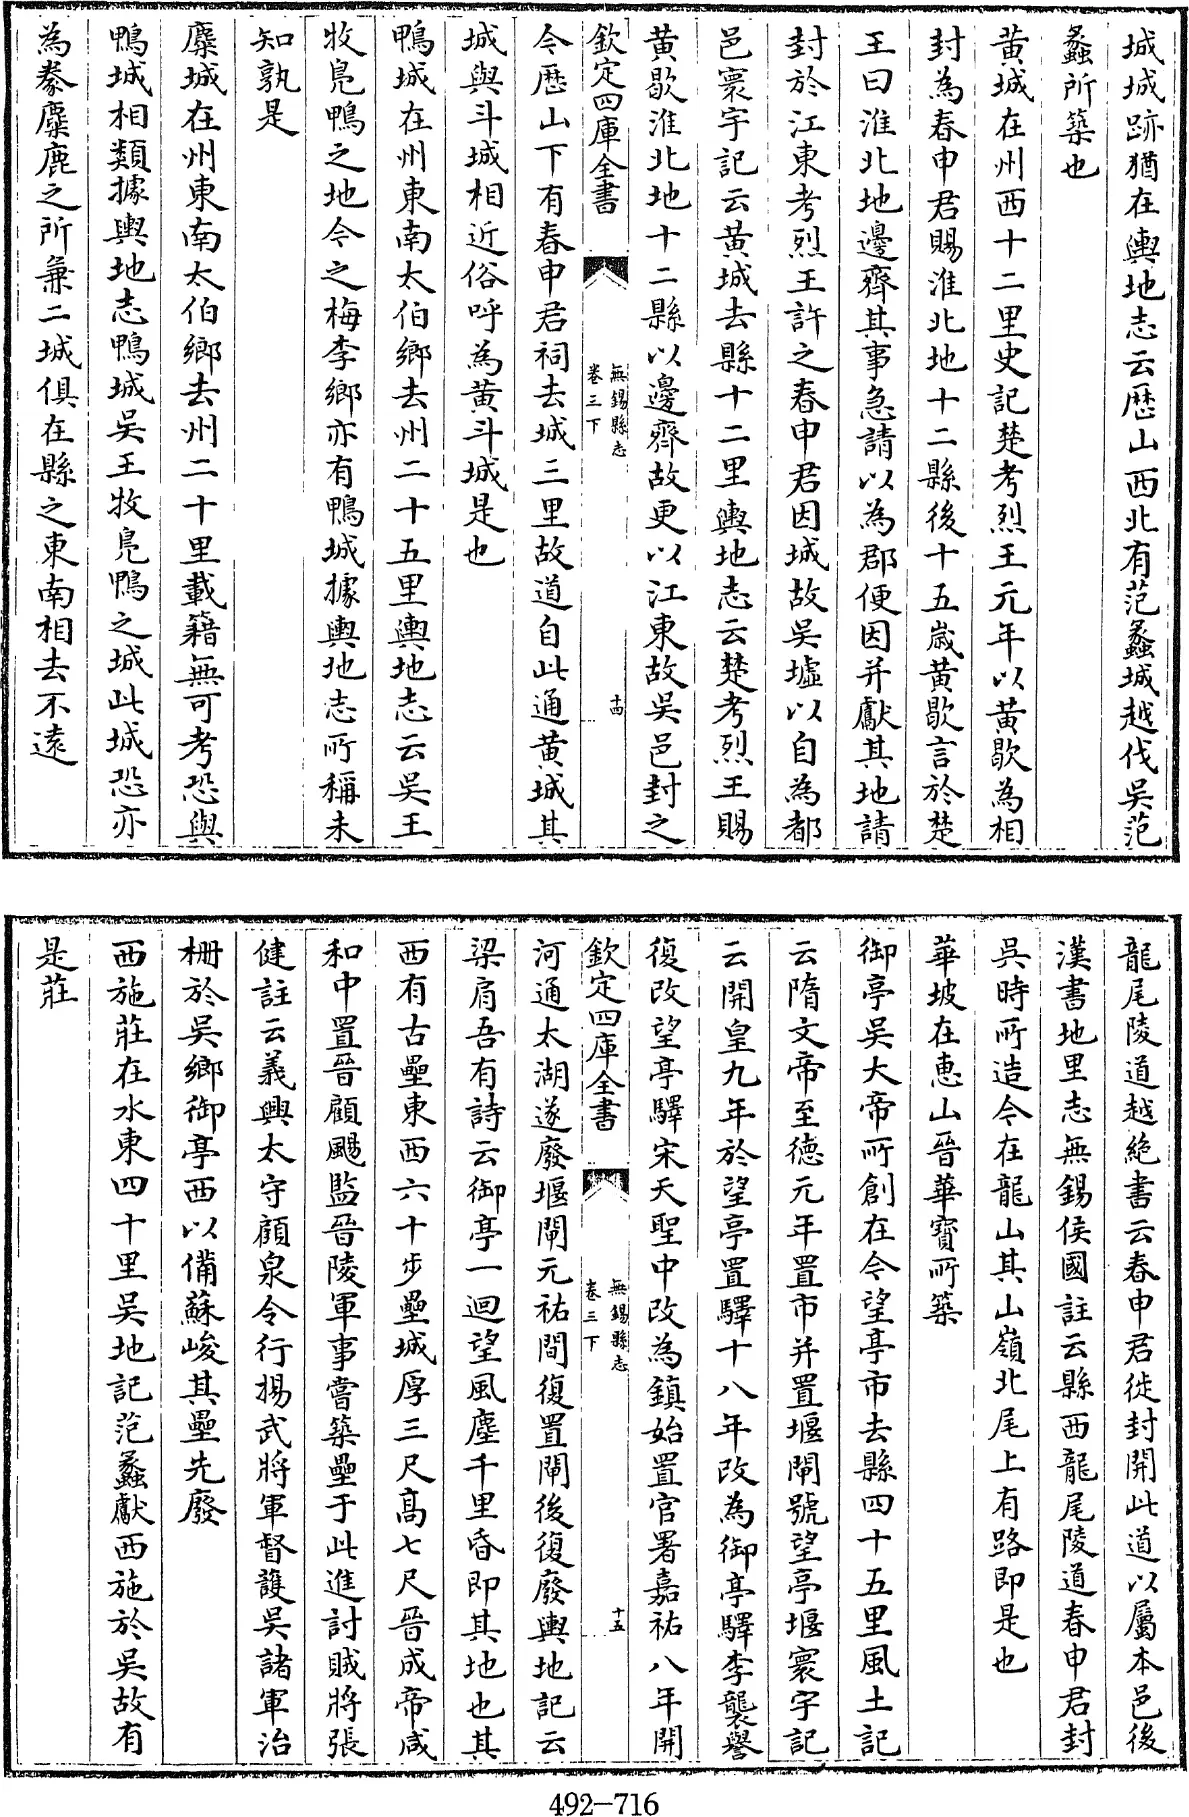 城城跡猶在輿地志云歴山西北有范蠡城越伐吳范
蠡所築也
黄城在州西十二里史記楚考烈王元年以黄歇為相
封為春申君賜淮北地十二縣後十五嵗黄歇言於楚
王曰淮北地邊齊其事急請以為郡便因并獻其地請
封於江東考烈王許之春申君因城故吳墟以自為都
邑寰宇記云黄城去縣十二里輿地志云楚考烈王賜
黄歇淮北地十二縣以邊齊故更以江東故吳邑封之
欽定四庫全書
無錫縣志
卷三下
十四
今歴山下有春申君祠去城三里故道自此通黄城其
城與斗城相近俗呼為黄斗城是也
鴨城在州東南太伯鄉去州二十五里輿地志云吳王
牧鳬鴨之地今之梅李鄉亦有鴨城據輿地志所稱未
知孰是
麋城在州東南太伯鄉去州二十里載籍無可考恐與
鴨城相類據輿地志鴨城吳王牧鳬鴨之城此城恐亦
為豢麋鹿之所兼二城俱在縣之東南相去不逺
龍尾陵道越絶書云春申君徙封開此道以屬本邑後
漢書地里志無錫侯國註云縣西龍尾陵道春申君封
呉時所造今在龍山其山嶺北尾上有路即是也
華坡在惠山晉華寳所築
御亭吳大帝所創在今望亭市去縣四十五里風土記
云隋文帝至德元年置市并置堰閘號望亭堰寰宇記
云開皇九年於望亭置驛十八年改為御亭驛李襲譽
復改望亭驛宋天聖中改為鎮始置官署嘉祐八年開
欽定四庫全書
無錫縣志
卷三下
十五
河通太湖遂廢堰閘元祐間復置閘後復廢輿地記云
梁肩吾有詩云御亭一迴望風塵千里昏即其地也其
西有古壘東西六十步壘城厚三尺髙七尺晉成帝咸
和中置晉顧颺監晉陵軍事嘗築壘于此進討賊將張
健註云義興太守顧泉令行揚武將軍督護吳諸軍治
柵於吳鄉御亭西以備蘇峻其壘先廢
西施莊在水東四十里吳地記范蠡獻西施於吳故有
是莊
492-716